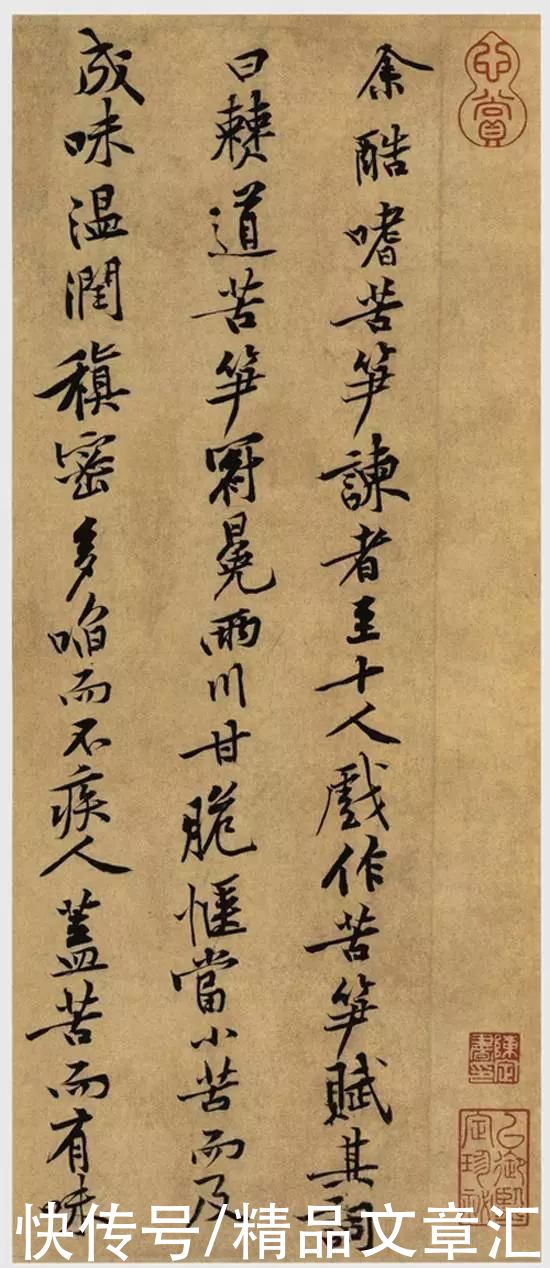 心賞
余酷嗜苦笋諫者至十人戲作苦笋賦其詞
曰僰道苦笋冠冕兩川甘脆愜當小苦而及
成味温潤稹密多啗而不疾人蓋苦而有味
快传号/精品文章汇